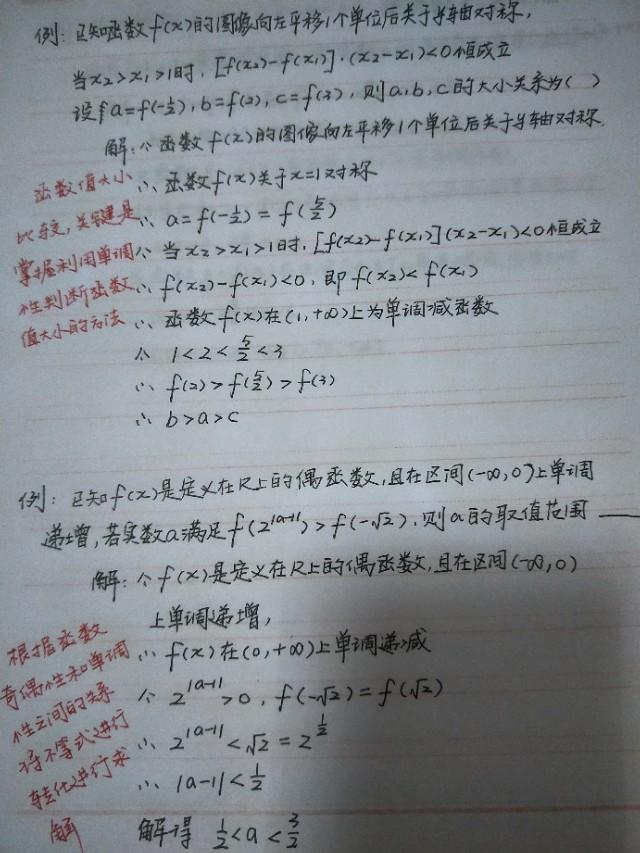 例：已知函数f(x)的图像向左平移1个单位后关于y轴对称，
当x₂>x₁>1时，[f(x₂)-f(x₁)]·(x₂-x₁)<0恒成立
设a=f(-½)，b=f(2)，c=f(3)，则a，b，c的大小关系为（ ）
解：∵函数f(x)的图像向左平移1个单位后关于y轴对称.
函数值大小 ∴函数f(x)关于x=1对称
比较，关键是 ∴a=f(-½)=f(5/2)
掌握利用单调 ∵当x₂>x₁>1时，[f(x₂)-f(x₁)](x₂-x₁)<0恒成立
性判断函数 ∴f(x₂)-f(x₁)<0，即f(x₂)<f(x₁)
值大小的方法 ∴函数f(x)在(1,+∞)上为单调减函数
∵1<2<5/2<3
∴f(2)>f(5/2)>f(3)
∴b>a>c
例：已知f(x)是定义在R上的偶函数，且在区间(-∞,0)上单调
递增，若实数a满足f(2^|a-1|)>f(-√2)，则a的取值范围
解：∵f(x)是定义在R上的偶函数，且在区间(-∞,0)
上单调递增，
根据函数 ∴f(x)在(0,+∞)上单调递减
奇偶性和单调 ∵2^|a-1|>0，f(-√2)=f(√2)
性之间的关系
将不等式进行 ∴2^|a-1|<√2=2^½
转化进行求 ∴|a-1|<½
解 解得 ½<a<3/2